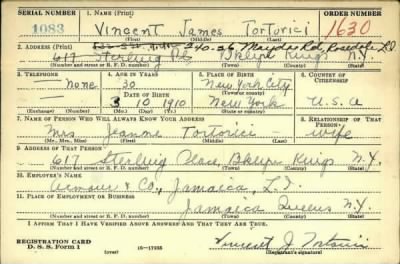 SERIAL NUMBER 1. NAME (Print) ORDER NUMBER
1083 Vincent James Tortorici 1630
(First) (Middle) (Last)
2. ADDRESS (Print) 240-26 Rd, Rosedale, L.I.
617 Sterling Pl. Bklyn Kings N.Y.
(Number and street or R. F. D. number) (Town) (County) (State)
3. TELEPHONE 4. AGE IN YEARS 5. PLACE OF BIRTH 6. COUNTRY OF CITIZENSHIP
None 30 New York City
DATE OF BIRTH (Town or county)
3 10 1910 New York U.S.A
(Exchange) (Number) (Mo.) (Day) (Yr.) (State or country)
7. NAME OF PERSON WHO WILL ALWAYS KNOW YOUR ADDRESS 8. RELATIONSHIP OF THAT PERSON
Mrs Jeanne Tortorici — wife
(Mr., Mrs., Miss) (First) (Middle) (Last)
9. ADDRESS OF THAT PERSON
617 Sterling Place, Bklyn Kings N.Y.
(Number and street or R. F. D. number) (Town) (County) (State)
10. EMPLOYER'S NAME
Armour & Co., Jamaica, L.I.
11. PLACE OF EMPLOYMENT OR BUSINESS
Jamaica Queens N.Y.
(Number and street or R. F. D. number) (Town) (County) (State)
I AFFIRM THAT I HAVE VERIFIED ABOVE ANSWERS AND THAT THEY ARE TRUE.
REGISTRATION CARD
D. S. S. Form 1 (over) 16—17105 Vincent J. Tortorici
(Registrant's signature)